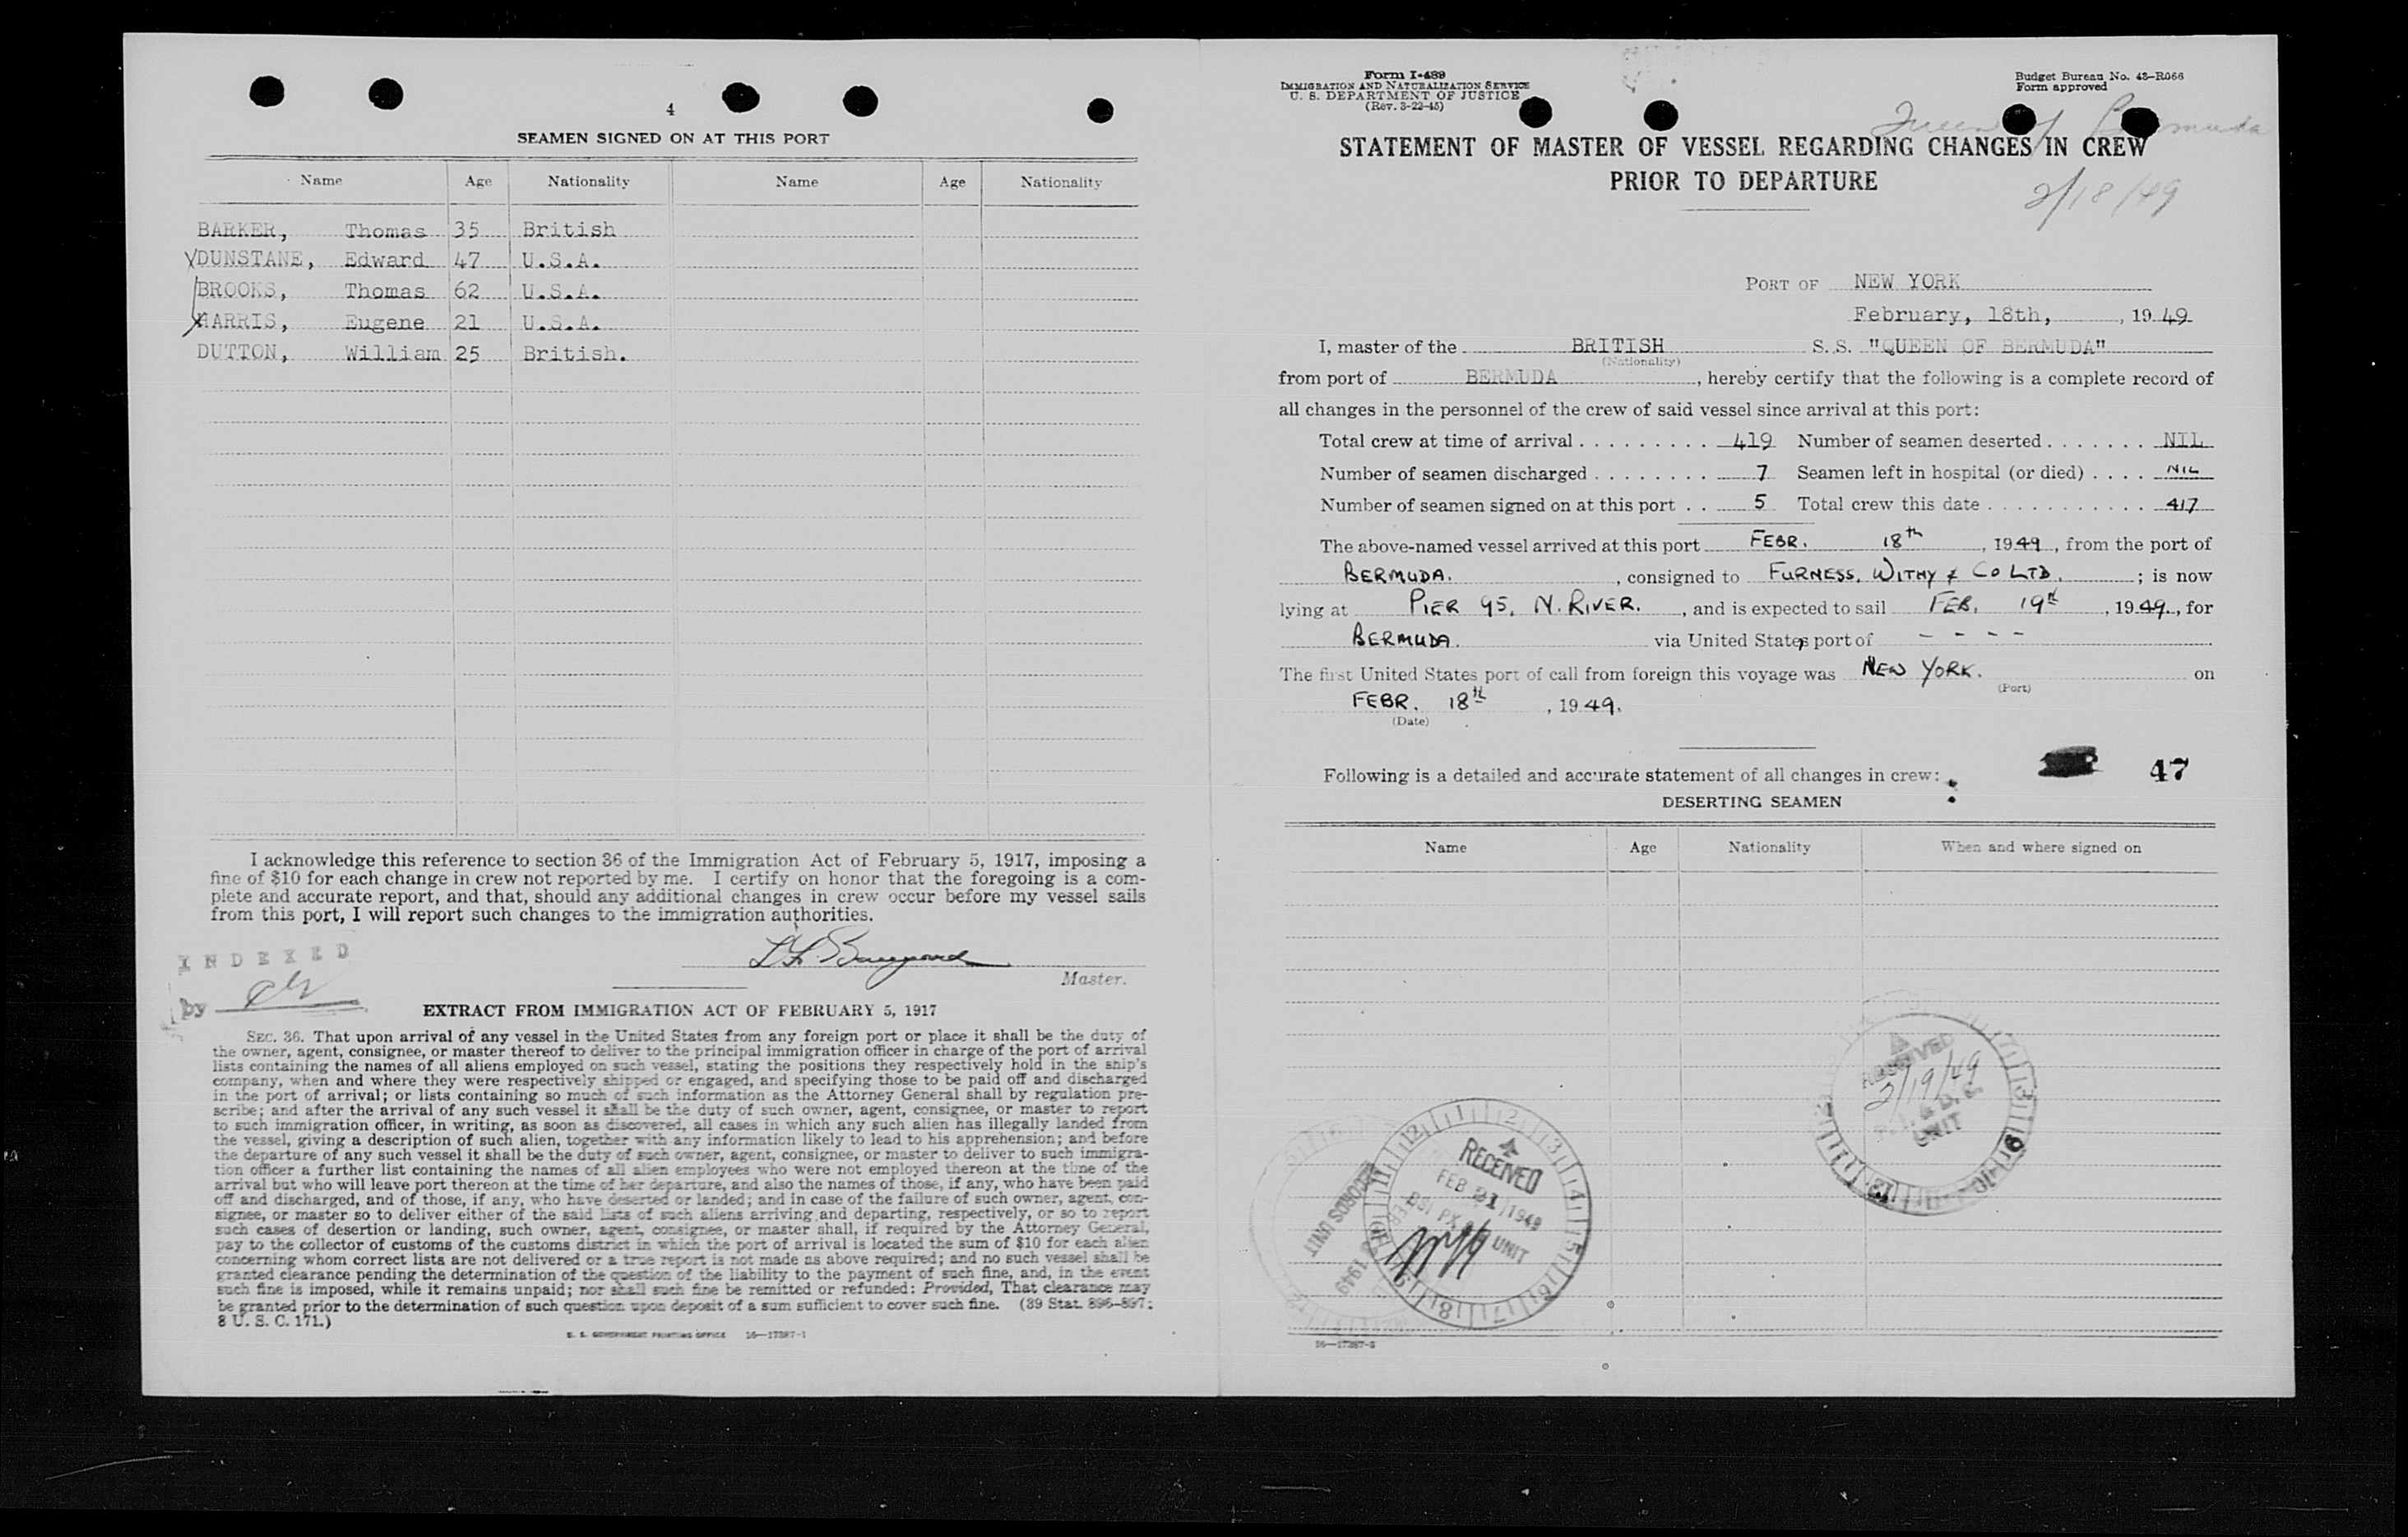 4
SEAMEN SIGNED ON AT THIS PORT
Name Age Nationality Name Age Nationality
BARKER, Thomas 35 British
DUNSTANE, Edward 47 U.S.A.
BROOKS, Thomas 62 U.S.A.
HARRIS, Eugene 21 U.S.A.
DUTTON, William 25 British.
I acknowledge this reference to section 36 of the Immigration Act of February 5, 1917, imposing a
fine of $10 for each change in crew not reported by me. I certify on honor that the foregoing is a com-
plete and accurate report, and that, should any additional changes in crew occur before my vessel sails
from this port, I will report such changes to the immigration authorities.
INDEXED
Master.
by
EXTRACT FROM IMMIGRATION ACT OF FEBRUARY 5, 1917
SEC. 36. That upon arrival of any vessel in the United States from any foreign port or place it shall be the duty of
the owner, agent, consignee, or master thereof to deliver to the principal immigration officer in charge of the port of arrival
lists containing the names of all aliens employed on such vessel, stating the positions they respectively hold in the ship's
company, when and where they were respectively shipped or engaged, and specifying those to be paid off and discharged
in the port of arrival; or lists containing so much of such information as the Attorney General shall by regulation pre-
scribe; and after the arrival of any such vessel it shall be the duty of such owner, agent, consignee, or master to report
to such immigration officer, in writing, as soon as discovered, all cases in which any such alien has illegally landed from
the vessel, giving a description of such alien, together with any information likely to lead to his apprehension; and before
the departure of any such vessel it shall be the duty of such owner, agent, consignee, or master to deliver to such immigra-
tion officer a further list containing the names of all alien employees who were not employed thereon at the time of the
arrival but who will leave port thereon at the time of her departure, and also the names of those, if any, who have been paid
off and discharged, and of those, if any, who have deserted or landed; and in case of the failure of such owner, agent, con-
signee, or master so to deliver either of the said lists of such aliens arriving and departing, respectively, or so to report
such cases of desertion or landing, such owner, agent, consignee, or master shall, if required by the Attorney General,
pay to the collector of customs of the customs district in which the port of arrival is located the sum of $10 for each alien
concerning whom correct lists are not delivered or a true report is not made as above required; and no such vessel shall be
granted clearance pending the determination of the question of the liability to the payment of such fine, and, in the event
such fine is imposed, while it remains unpaid; nor shall such fine be remitted or refunded: Provided, That clearance may
be granted prior to the determination of such question upon deposit of a sum sufficient to cover such fine. (39 Stat. 896-897;
8 U. S. C. 171.)
U. S. GOVERNMENT PRINTING OFFICE 16—17387-1
Form I-489
IMMIGRATION AND NATURALIZATION SERVICE
U. S. DEPARTMENT OF JUSTICE
(Rev. 3-22-45)
Budget Bureau No. 43-R066
Form approved
Queen of Bermuda
STATEMENT OF MASTER OF VESSEL REGARDING CHANGES IN CREW
PRIOR TO DEPARTURE
2/18/49
PORT OF NEW YORK
February, 18th, , 19 49
I, master of the BRITISH S. S. "QUEEN OF BERMUDA"
(Nationality)
from port of BERMUDA , hereby certify that the following is a complete record of
all changes in the personnel of the crew of said vessel since arrival at this port:
Total crew at time of arrival . . . . . . . . . 419 Number of seamen deserted . . . . . . . NIL
Number of seamen discharged . . . . . . . . 7 Seamen left in hospital (or died) . . . . NIL
Number of seamen signed on at this port . . 5 Total crew this date . . . . . . . . . . . . 417
The above-named vessel arrived at this port FEBR. 18th , 1949, from the port of
BERMUDA. , consigned to FURNESS, WITHY & CO LTD. ; is now
lying at PIER 95, N. RIVER. , and is expected to sail FEB. 19th , 1949, for
BERMUDA. via United States port of - - - -
The first United States port of call from foreign this voyage was NEW YORK. on
(Port)
FEBR. 18th , 19 49.
(Date)
Following is a detailed and accurate statement of all changes in crew: 47
DESERTING SEAMEN
Name Age Nationality When and where signed on
RECEIVED
2/19/49
UNIT
RECEIVED
FEB 21 1949
BSI
UNIT
RECORDS UNIT
1949
16—17387-2